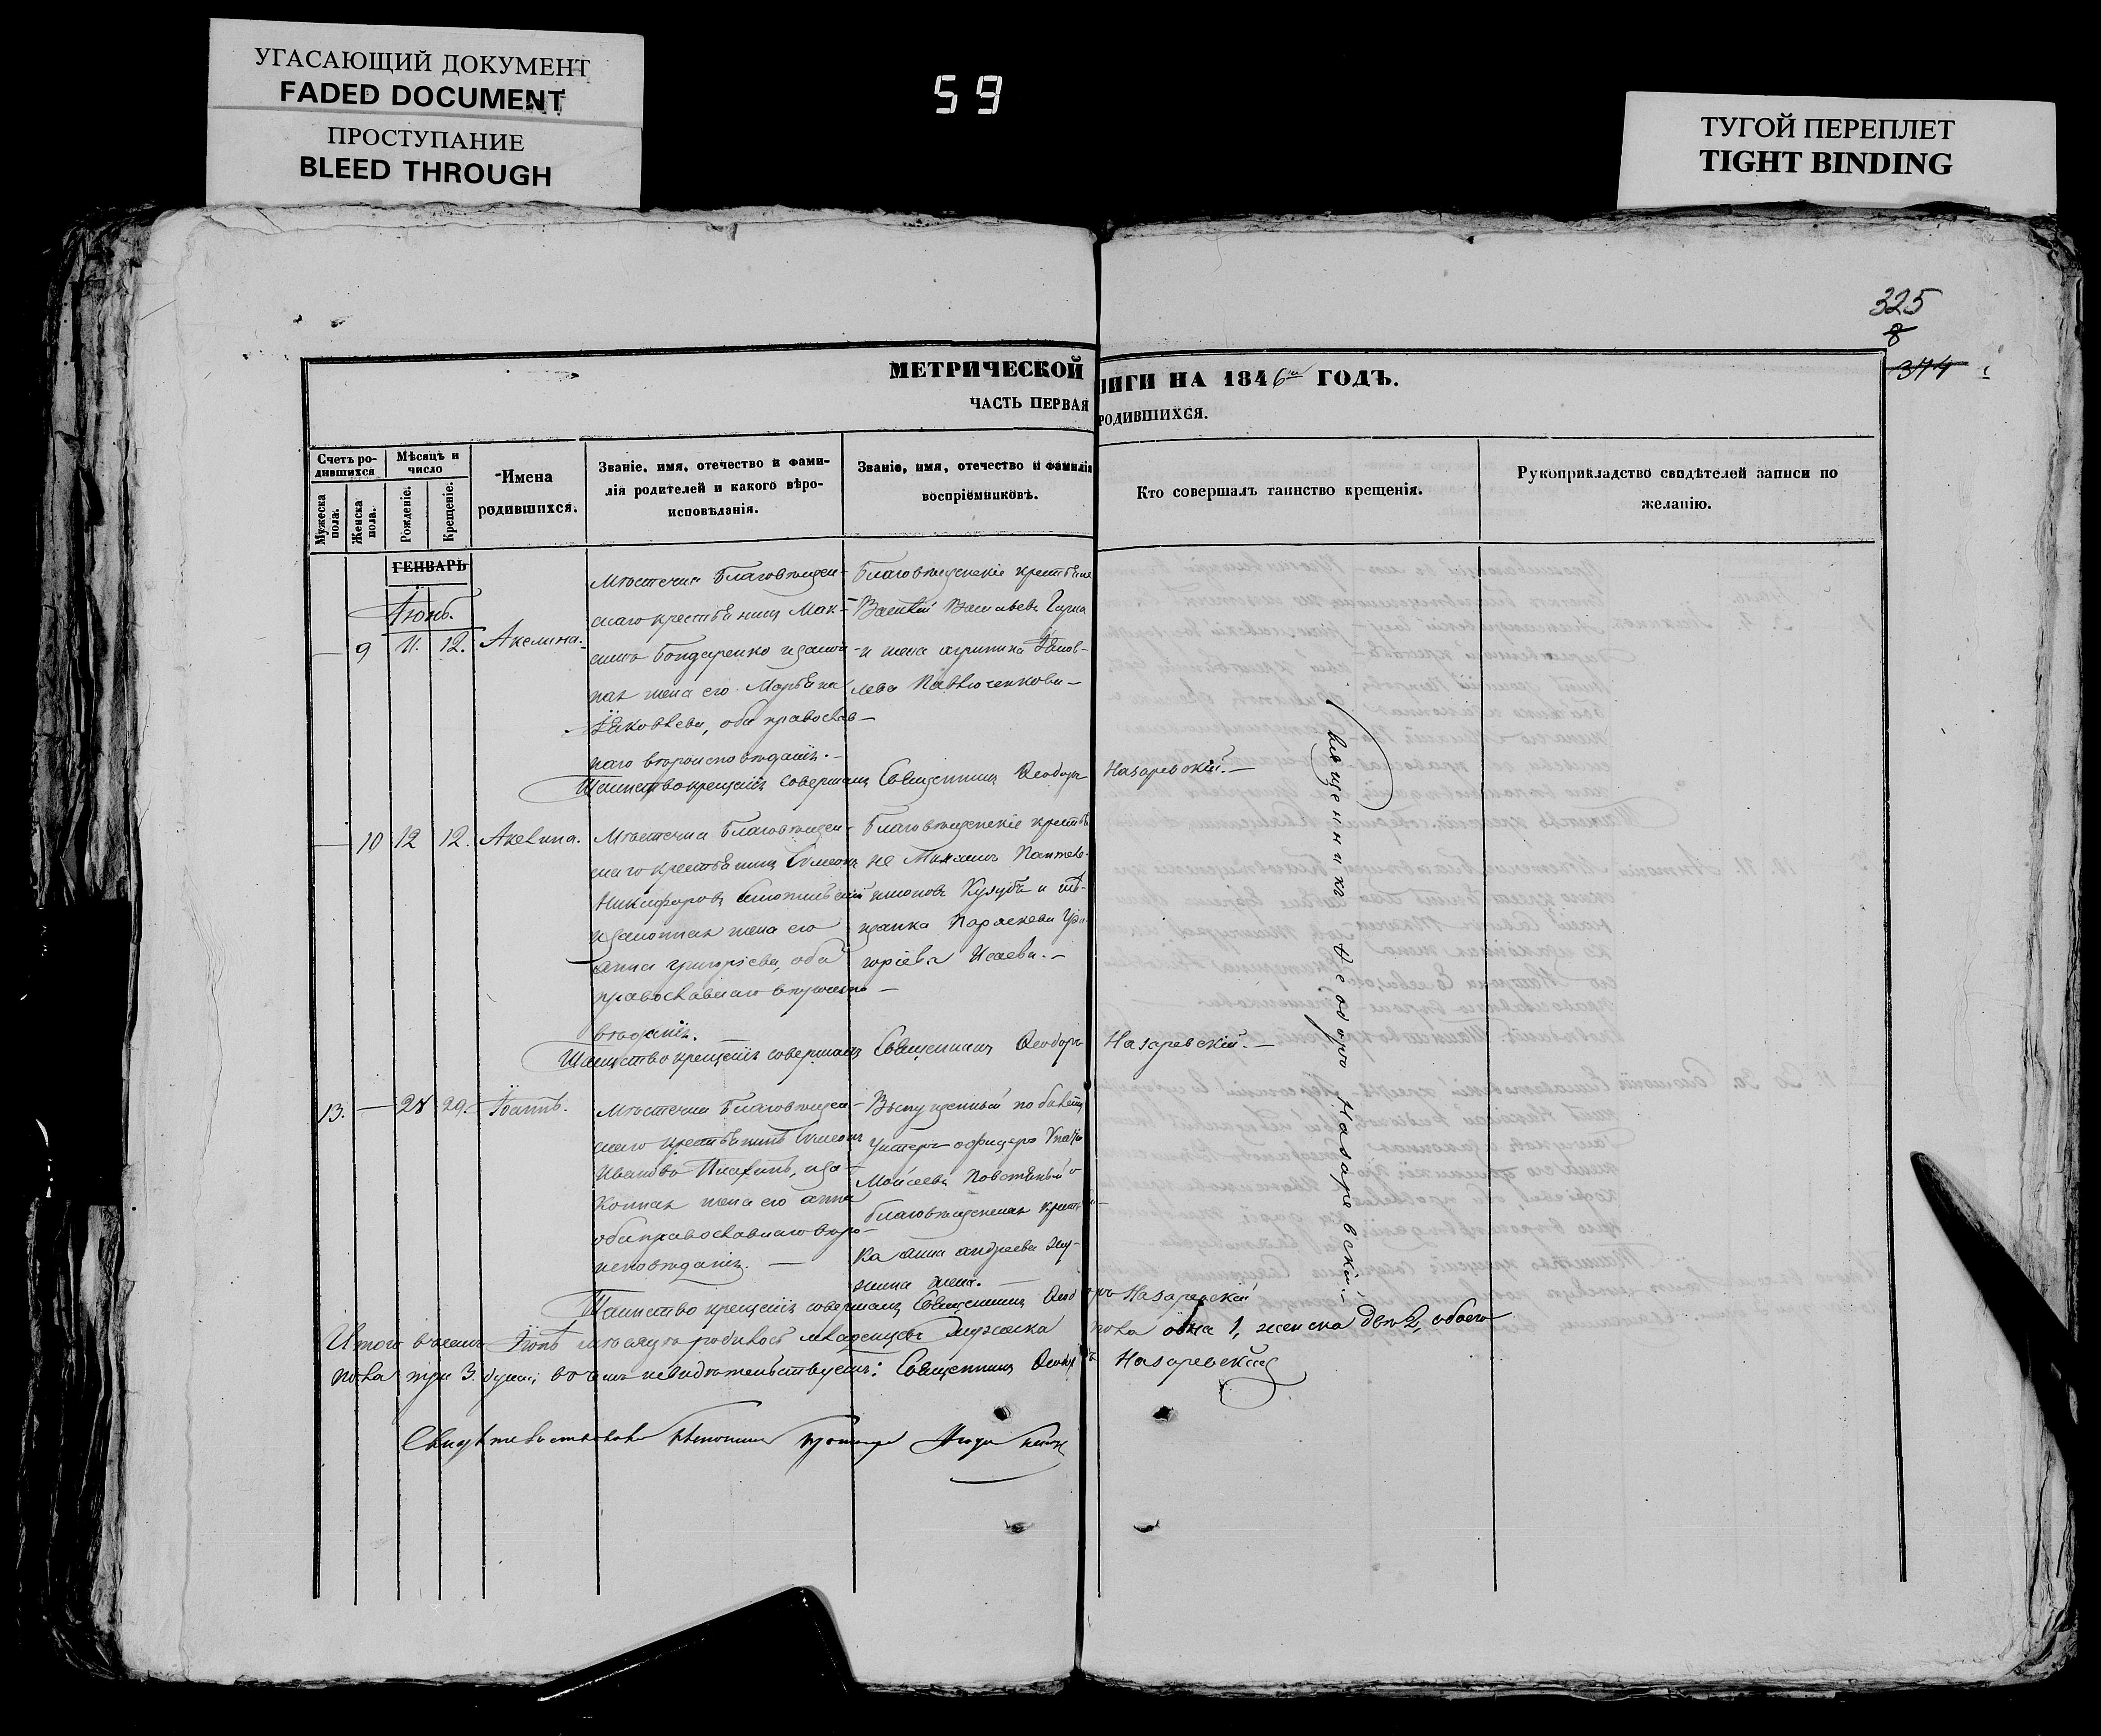 УГАСАЮЩИЙ ДОКУМЕНТ
FADED DOCUMENT
ПРОСТУПАНИЕ
BLEED THROUGH
59
ТУГОЙ ПЕРЕПЛЕТ
TIGHT BINDING
325
8
344
МЕТРИЧЕСКОЙ
НИГИ НА 1846 ГОДЪ.
ЧАСТЬ ПЕРВАЯ
РОДИВШИХСЯ.
Счетъ ро-
дившихся
Мужеска
пола.
Женска
пола.
Мѣсяцъ и
число
Рожденіе.
Крещеніе.
Имена
родившихся.
Званіе, имя, отечество и фами-
лія родителей и какого вѣро-
исповѣданія.
Званіе, имя, отечество и фамилія
воспріемниковъ.
Кто совершалъ таинство крещенія.
Рукоприкладство свидѣтелей записи по
желанію.
ГЕНВАРЬ
Іюнь.
— 9 11. 12. Акелина.
Мѣстечка Благовѣщен-
скаго крестьянинъ Мак-
симъ Бондаренко и закон-
ная жена его Марьяна
Яковлева, оба православ-
наго вѣроисповѣданія.—
Благовѣщенскіе крестьяне
Василій Васильевъ
и жена Агрипина Яков-
лева Павлюченкова—
Таинство крещенія совершалъ Священникъ Феодоръ Назаревскій.—
— 10 12 12. Акелина.
Мѣстечка Благовѣщен-
скаго крестьянинъ Симеонъ
Никифоровъ
и законная жена его
Анна Григорьева, оба
православнаго вѣроиспо-
вѣданія.
Благовѣщенскіе крестья
не Михаилъ Пантеле-
имоновъ Кулуба и дѣ-
Параскева Гри-
горіева Исаева.—
Таинство крещенія совершалъ Священникъ Феодоръ Назаревскій.—
13. — 28 29. Іоаннъ.
Мѣстечка Благовѣщен-
скаго крестьянинъ Симеонъ
Ивановъ и за-
конная жена его Анна
оба православнаго вѣро-
исповѣданія.—
Выпущенный по билету
Унтеръ офицеръ Игнатій
Моисеевъ Повстяный и
благовѣщенская крестьян-
ка Анна Андреева
жена.—
Таинство крещенія совершалъ Священникъ Феодоръ Назаревскій
Священникъ Феодоръ Назаревскій.
Итого въ семъ Іюнѣ мѣсяцѣ родилось младенцевъ мужеска пола одна 1, женска двѣ 2, обоего
пола три 3. души, въ чемъ и свидѣтельствуемъ: Священникъ Феодоръ Назаревскій
Свидѣтельствовалъ